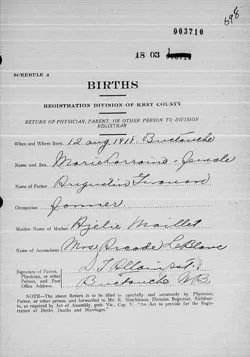 003710
698
18 03 1
SCHEDULE A
BIRTHS
REGISTRATION DIVISION OF KENT COUNTY
RETURN OF PHYSICIAN, PARENT, OR OTHER PERSON TO DIVISION
REGISTRAR
When and Where Born. 12 aug. 1918. Buctouche
Name and Sex Marie Lorraine - female
Name of Father
Occupation farmer
Maiden Name of Mother Maillet
Name of Accoucheur Mrs Arcade LeBlanc
Signature of Parent,
Physician, or other
Person, and Post
Office Address.
Buctouche N.B.
NOTE—The above Return is to be filled in carefully and accurately by Physician,
Parent, or other person, and forwarded to Mr. R. Hutchinson, Division Registrar, Richibucto, as required by Act of Assembly, 50th Vic., Cap. V: "An Act to provide for the Registration of Births, Deaths and Marriages."